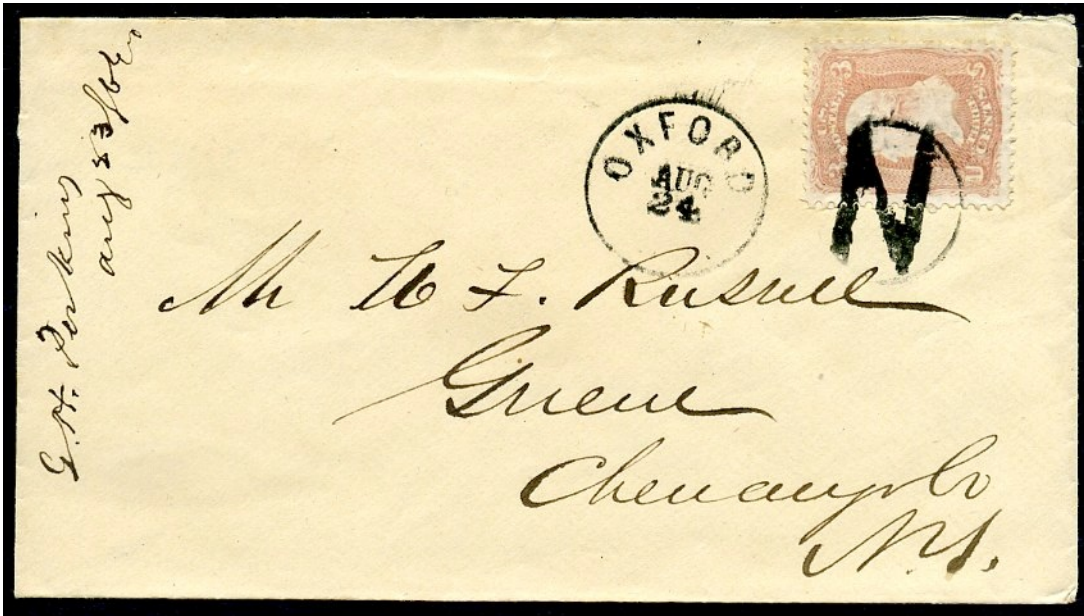 G. H. Perkins
Aug 23/66
OXFORD
AUG
24
N
Mr W F. Russell
Greene
Chenango Co
N.Y.